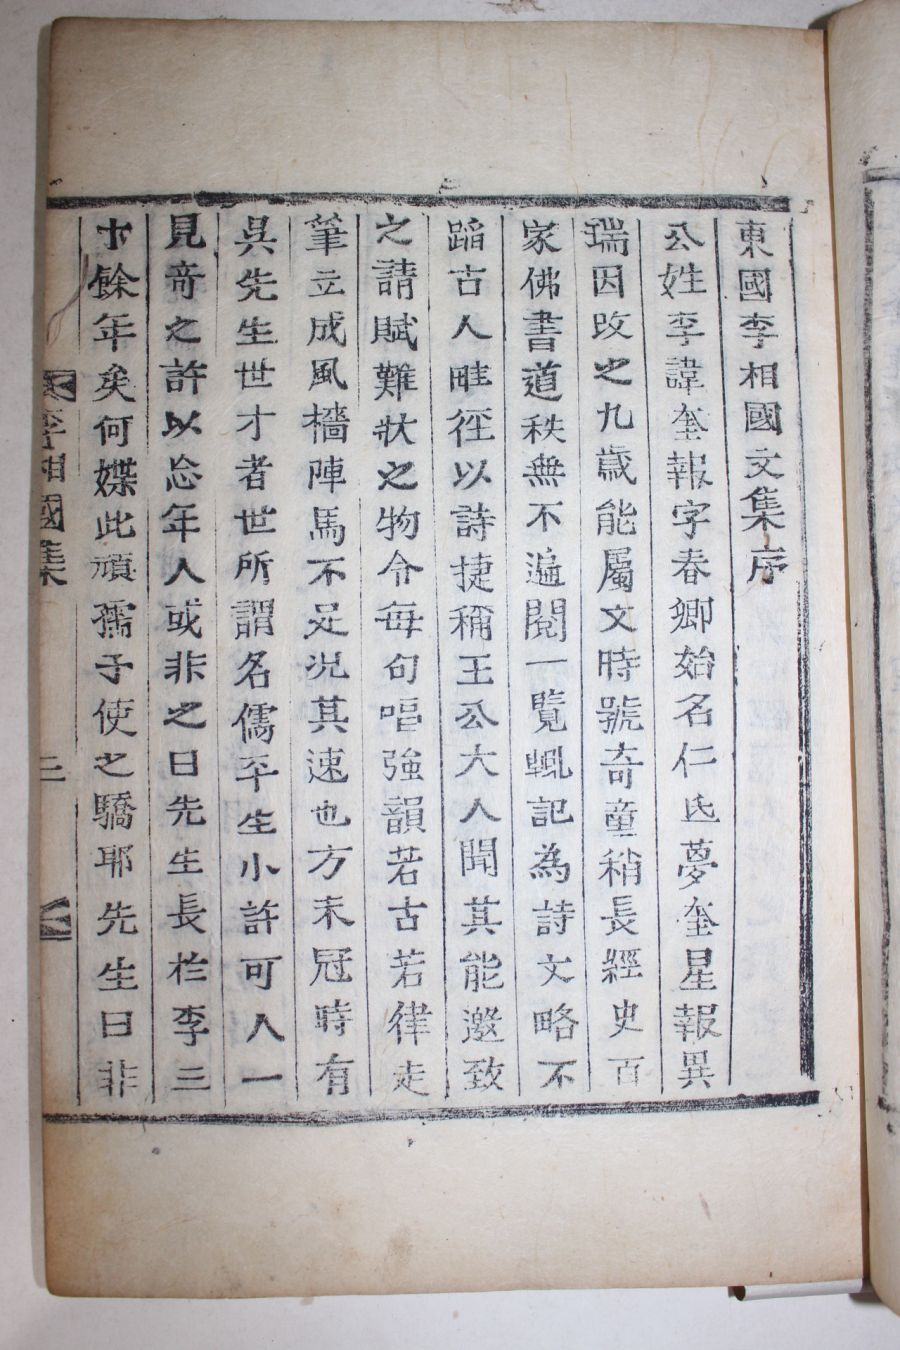 東國李相國文集序
公姓李諱奎報字春卿始名仁氐夢奎星報異
瑞因改之九歲能屬文時號奇童稍長經史百
家佛書道秩無不遍閱一覽輒記為詩文略不
蹈古人畦徑以詩捷稱王公大人聞其能邀致
之請賦難狀之物令每句唱強韻若古若律走
筆立成風檣陣馬不足况其速也方未冠時有
吳先生世才者世所謂名儒平生小許可人一
見竒之許以忘年人或非之曰先生長於李三
十餘年矣何媟此頑孺子使之驕耶先生曰非
李相國集
二